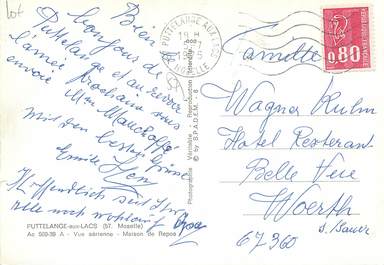 lot
Bien
bonjour de
Puttelange et au revoir
l'année prochaine vous
envoie
Mme
Mit den besten Grüsse
Emile
Hoffentlich seit Ihr
alle noch wohlauf
PUTTELANGE-aux-LACS (57. Moselle)
Ac 509-39 A - Vue aérienne - Maison de Repos
Photographie Véritable Reproduction Interdite
© by S.P.A.D.E.M.
57 PUTTELANGE AUX LACS
18 H
MOSELLE
0,80
Wagner Kuhn
Hotel Resterant
Belle Vue
Woerth
67360